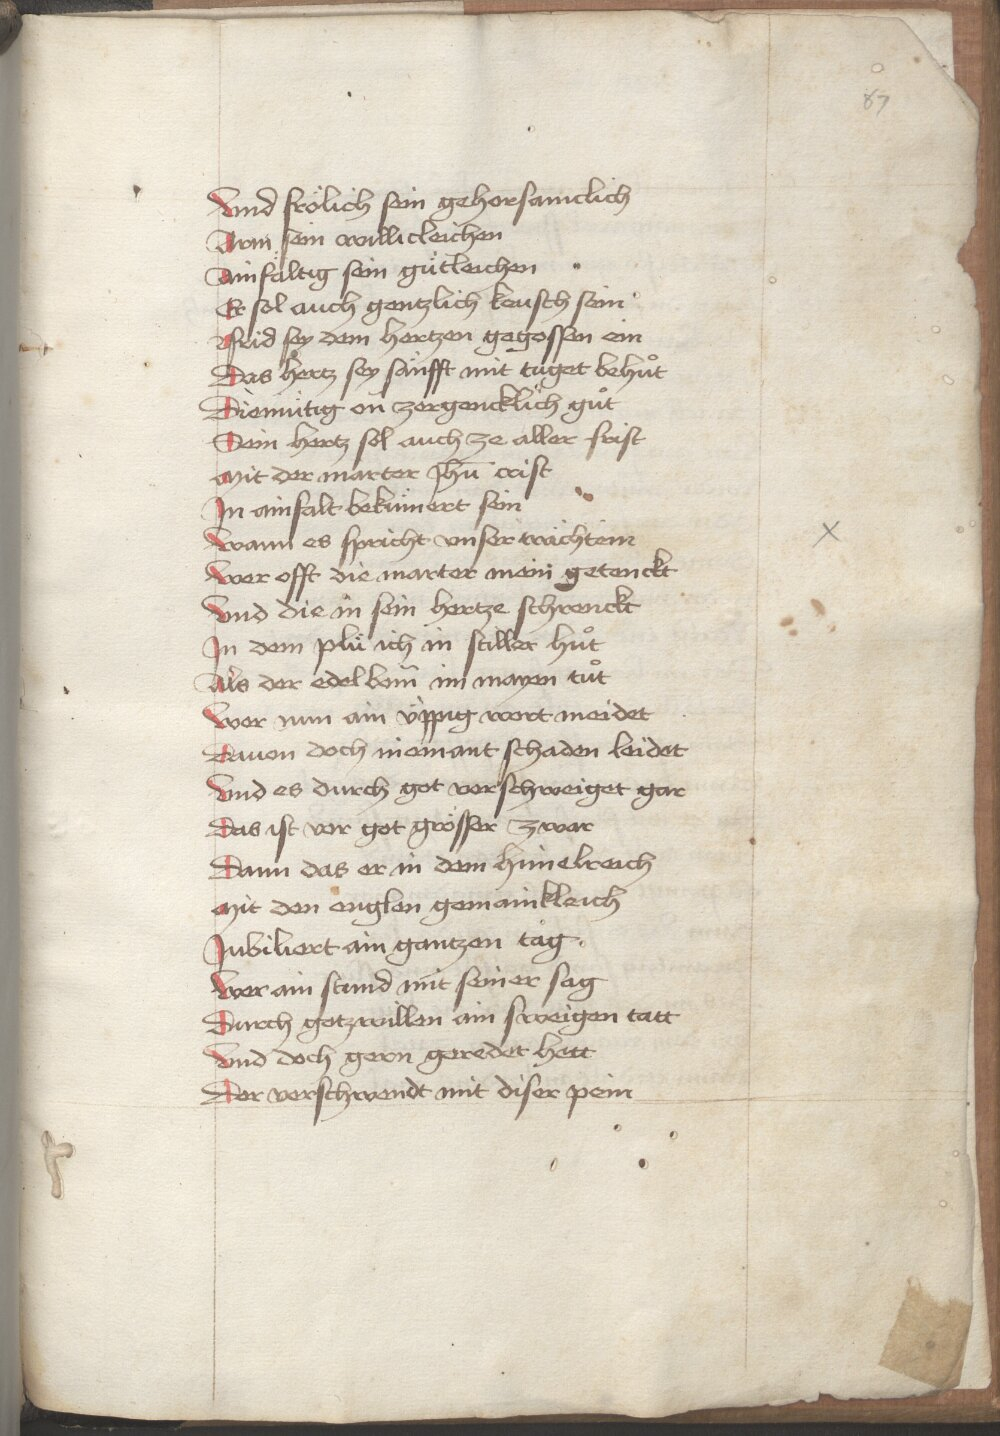 87
Vnd frölich sein gehorsamclich
Arm sein willicleichen
Ainfältig sein gütleichen
Er sol auch gentzlich keusch sein
Frid sey dem hertzen gegossen ein
Das hertz sey sänfft mit tuget behuͦt
Diemütig on zergencklich guͦt
Dein hertz sol auch ze aller frist
Mit der marter jhū crist
In ainfalt bekümert sein
Wann es spricht vnser trächtein
Wer offt die marter mein getenckt
Vnd die in sein hertze schrenckt
In dem plü ich in stiller huͦt
Als der edel bem̄ im mayen tuͦt
Wer nun ain üppig wort meidet
Dauon doch niemant schaden leidet
Vnd es durch got verschweiget gar
Das ist vor got grösser zwar
Dann das er in dem himelreich
Mit den englen gemainkleich
Jubiliert ain gantzen tag
Wer ain stund mit seiner sag
Durch gotzwillen ain sweigen tatt
Vnd doch gern geredet hett
Der verschwendt mit diser pein